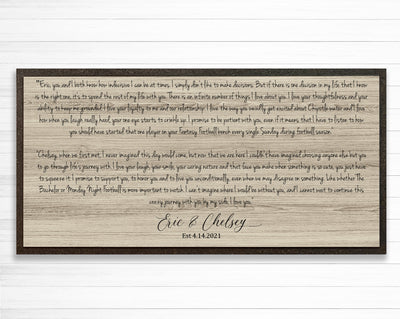 "Eric, you and I both know how indecisive I can be at times. I simply don't like to make decisions. But if there is one decision in my life that I know
is the right one, it's to spend the rest of my life with you. There is an infinite number of things I love about you. I love your thoughtfulness and your
ability to keep me grounded. I love your loyalty to me and our relationship. I love the way you usually get excited about Chrystal water and I love
how when you laugh really hard, your one eye starts to crinkle up. I promise to be patient with you, even if it means that I have to listen to how
you should have started that one player on your Fantasy Football bench every single Sunday during football season."
"Chelsey, when we first met, I never imagined this day would come, but now that we are here I couldn't have imagined choosing anyone else but you
to go through life's journey with. I love your laugh, your smile, your caring nature and that face you make when something is so cute, you just have
to squeeze it. I promise to support you, to honor you and to love you unconditionally, even when we may disagree on something. Like whether The
Bachelor or Monday Night Football is more important to watch. I can't imagine where I would be without you, and I cannot wait to continue this
journey with you by my side. I love you."
Eric & Chelsey
Est 4.14.2021